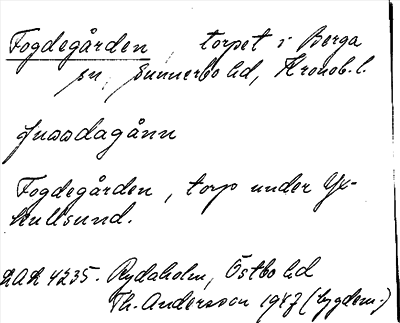 Fogdegården torpet i Berga
sn, Sunnerbo hd, Kronob. l.
fussdagånn
Fogdegården, torp under Yx-
kullsund.
4235. Rydaholm, Östbo hd
Th. Andersson 1947 (bygdem.)